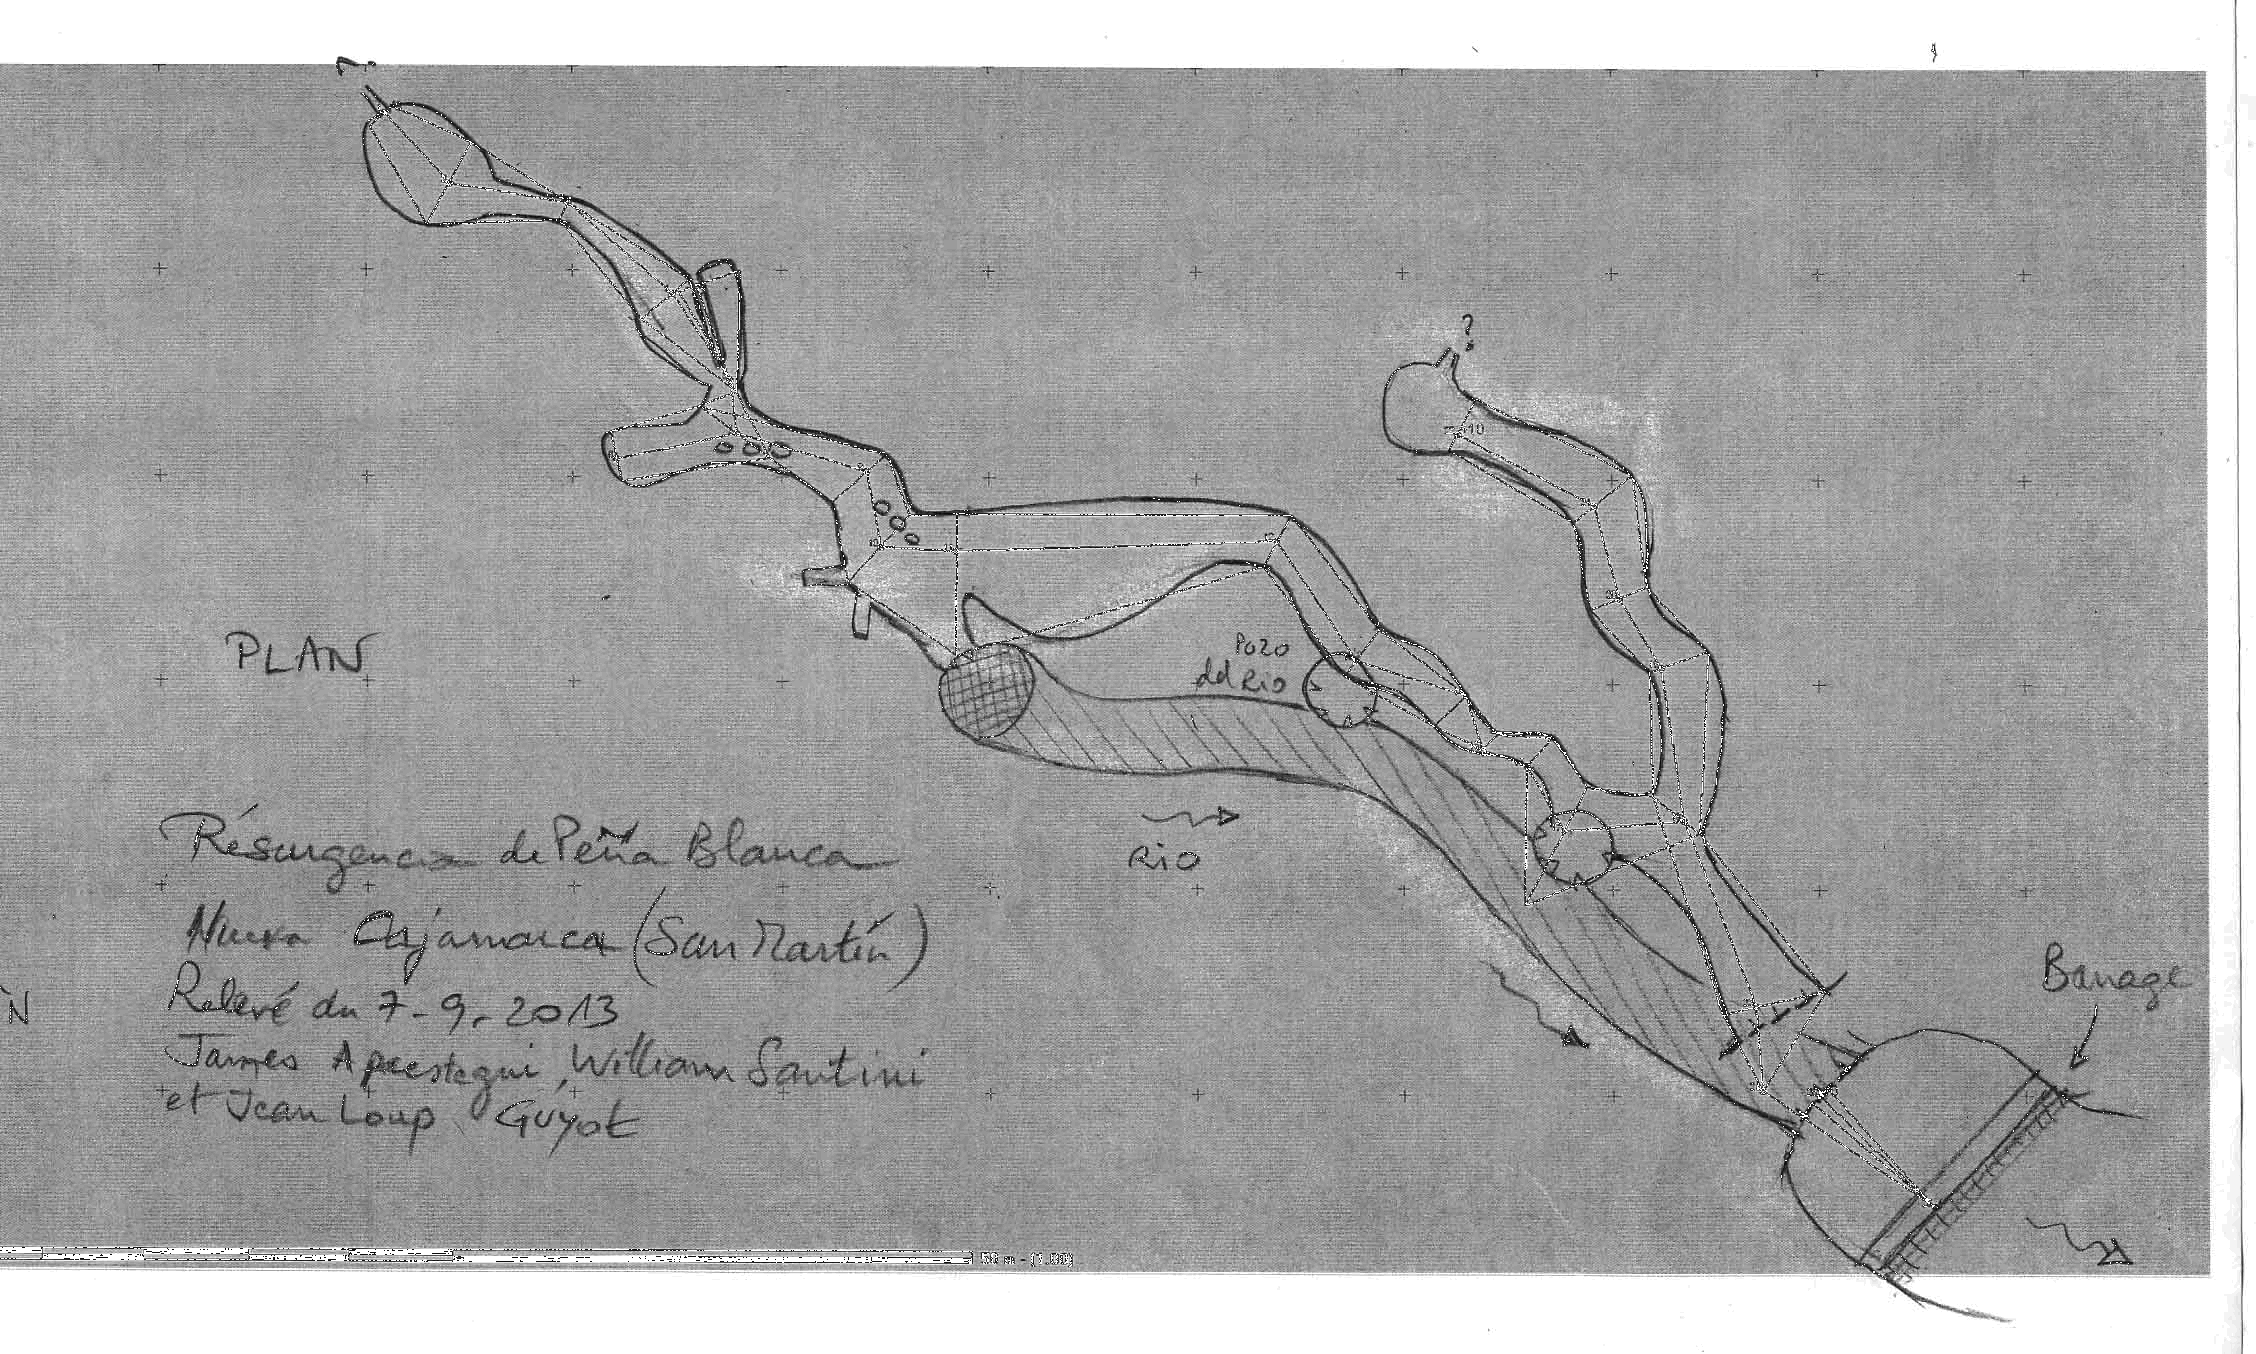 ?
?
10
Pozo
del Rio
PLAN
RIO
Résurgencia de Peña Blanca
Nueva Cajamarca (San Martín)
Relevé du 7-9-2013
James Apaestegui, William Santini
et Jean Loup Guyot
Barrage
N
50 m - (1:00)